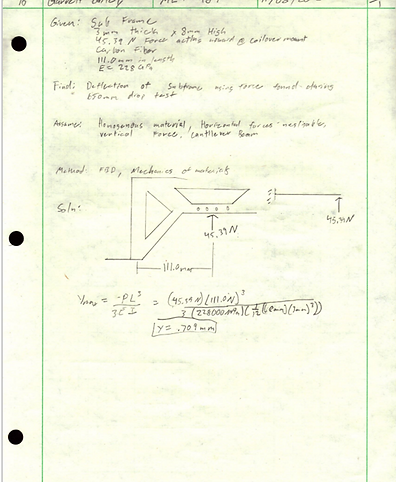 Given: Sub Frame
3mm thick x 8mm High
45.39 N Force acting upward @ coilover mount
Carbon Fiber
111.0mm in length
E = 228 GPa
Find: Deflection of Subframe using force found during
drop test
Assume: Homogenous material, Horizontal forces negligible,
vertical Force, cantilever Beam
Method: FBD, Mechanics of materials
Soln:
45.39 N
45.39 N
111.0mm
Ymax = -PL³ / 3EI = (45.39 N)(111.0)³ / 3(228000
Y = .709 mm